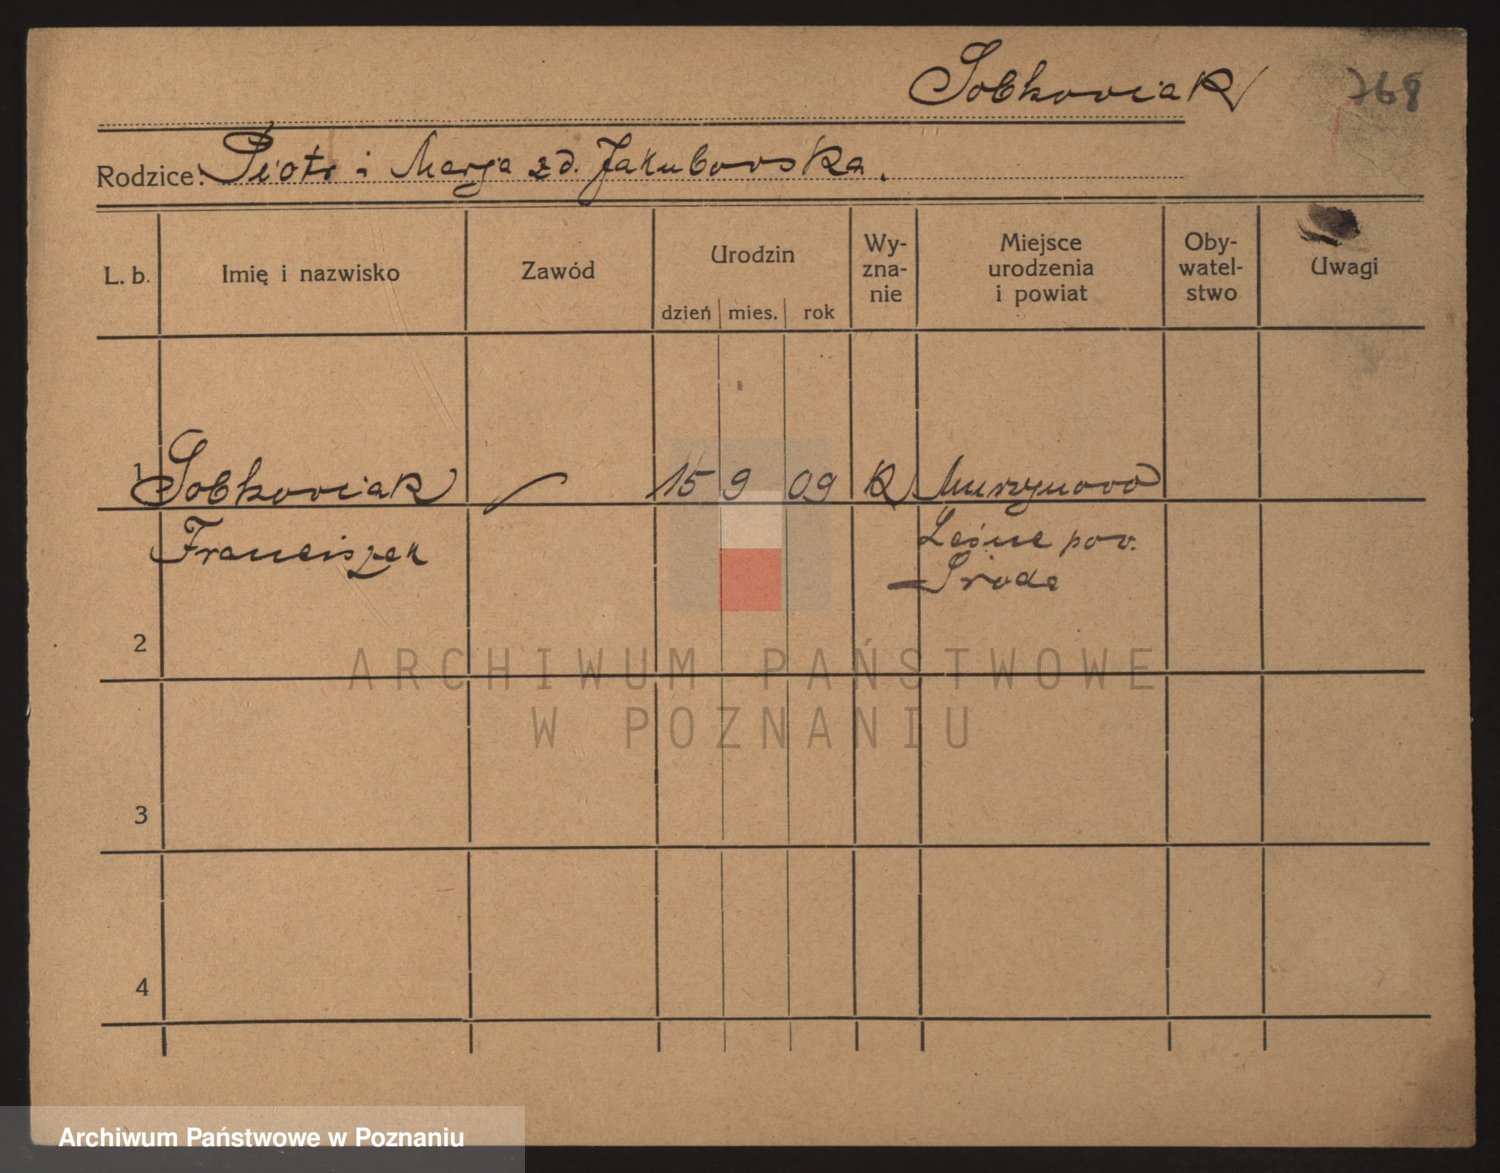 Sobkowiak 768
Rodzice: Piotr i Marja zd. Jakubowska.
L. b. Imię i nazwisko Zawód Urodzin Wy-zna-nie Miejsce urodzenia i powiat Oby-watel-stwo Uwagi
dzień mies. rok
1 Sobkowiak 15 9 09 K Murzynowo
Franciszek Leśne pow.
Środa
2
ARCHIWUM PAŃSTWOWE
W POZNANIU
3
4
Archiwum Państwowe w Poznaniu